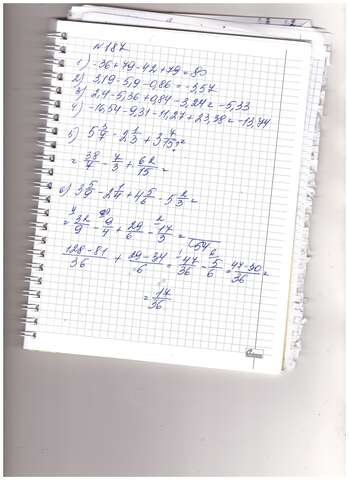 №187
1) -36+79-42+79=80
2) 3,19-5,9-0,86=-3,57
3) 2,4-5,36+0,84-3,24=-5,33
4) -16,54-9,31-11,27+23,38=-13,74
5)
6) 3 5/9 - 2 1/4 + 4 5/6 - 5 2/3 =
= 32/9 - 9/4 + 29/6 - 17/3 =
128-81/36 + 29-34/6 = 47/36 - 5/6 = 47-30/36 =
= 17/36